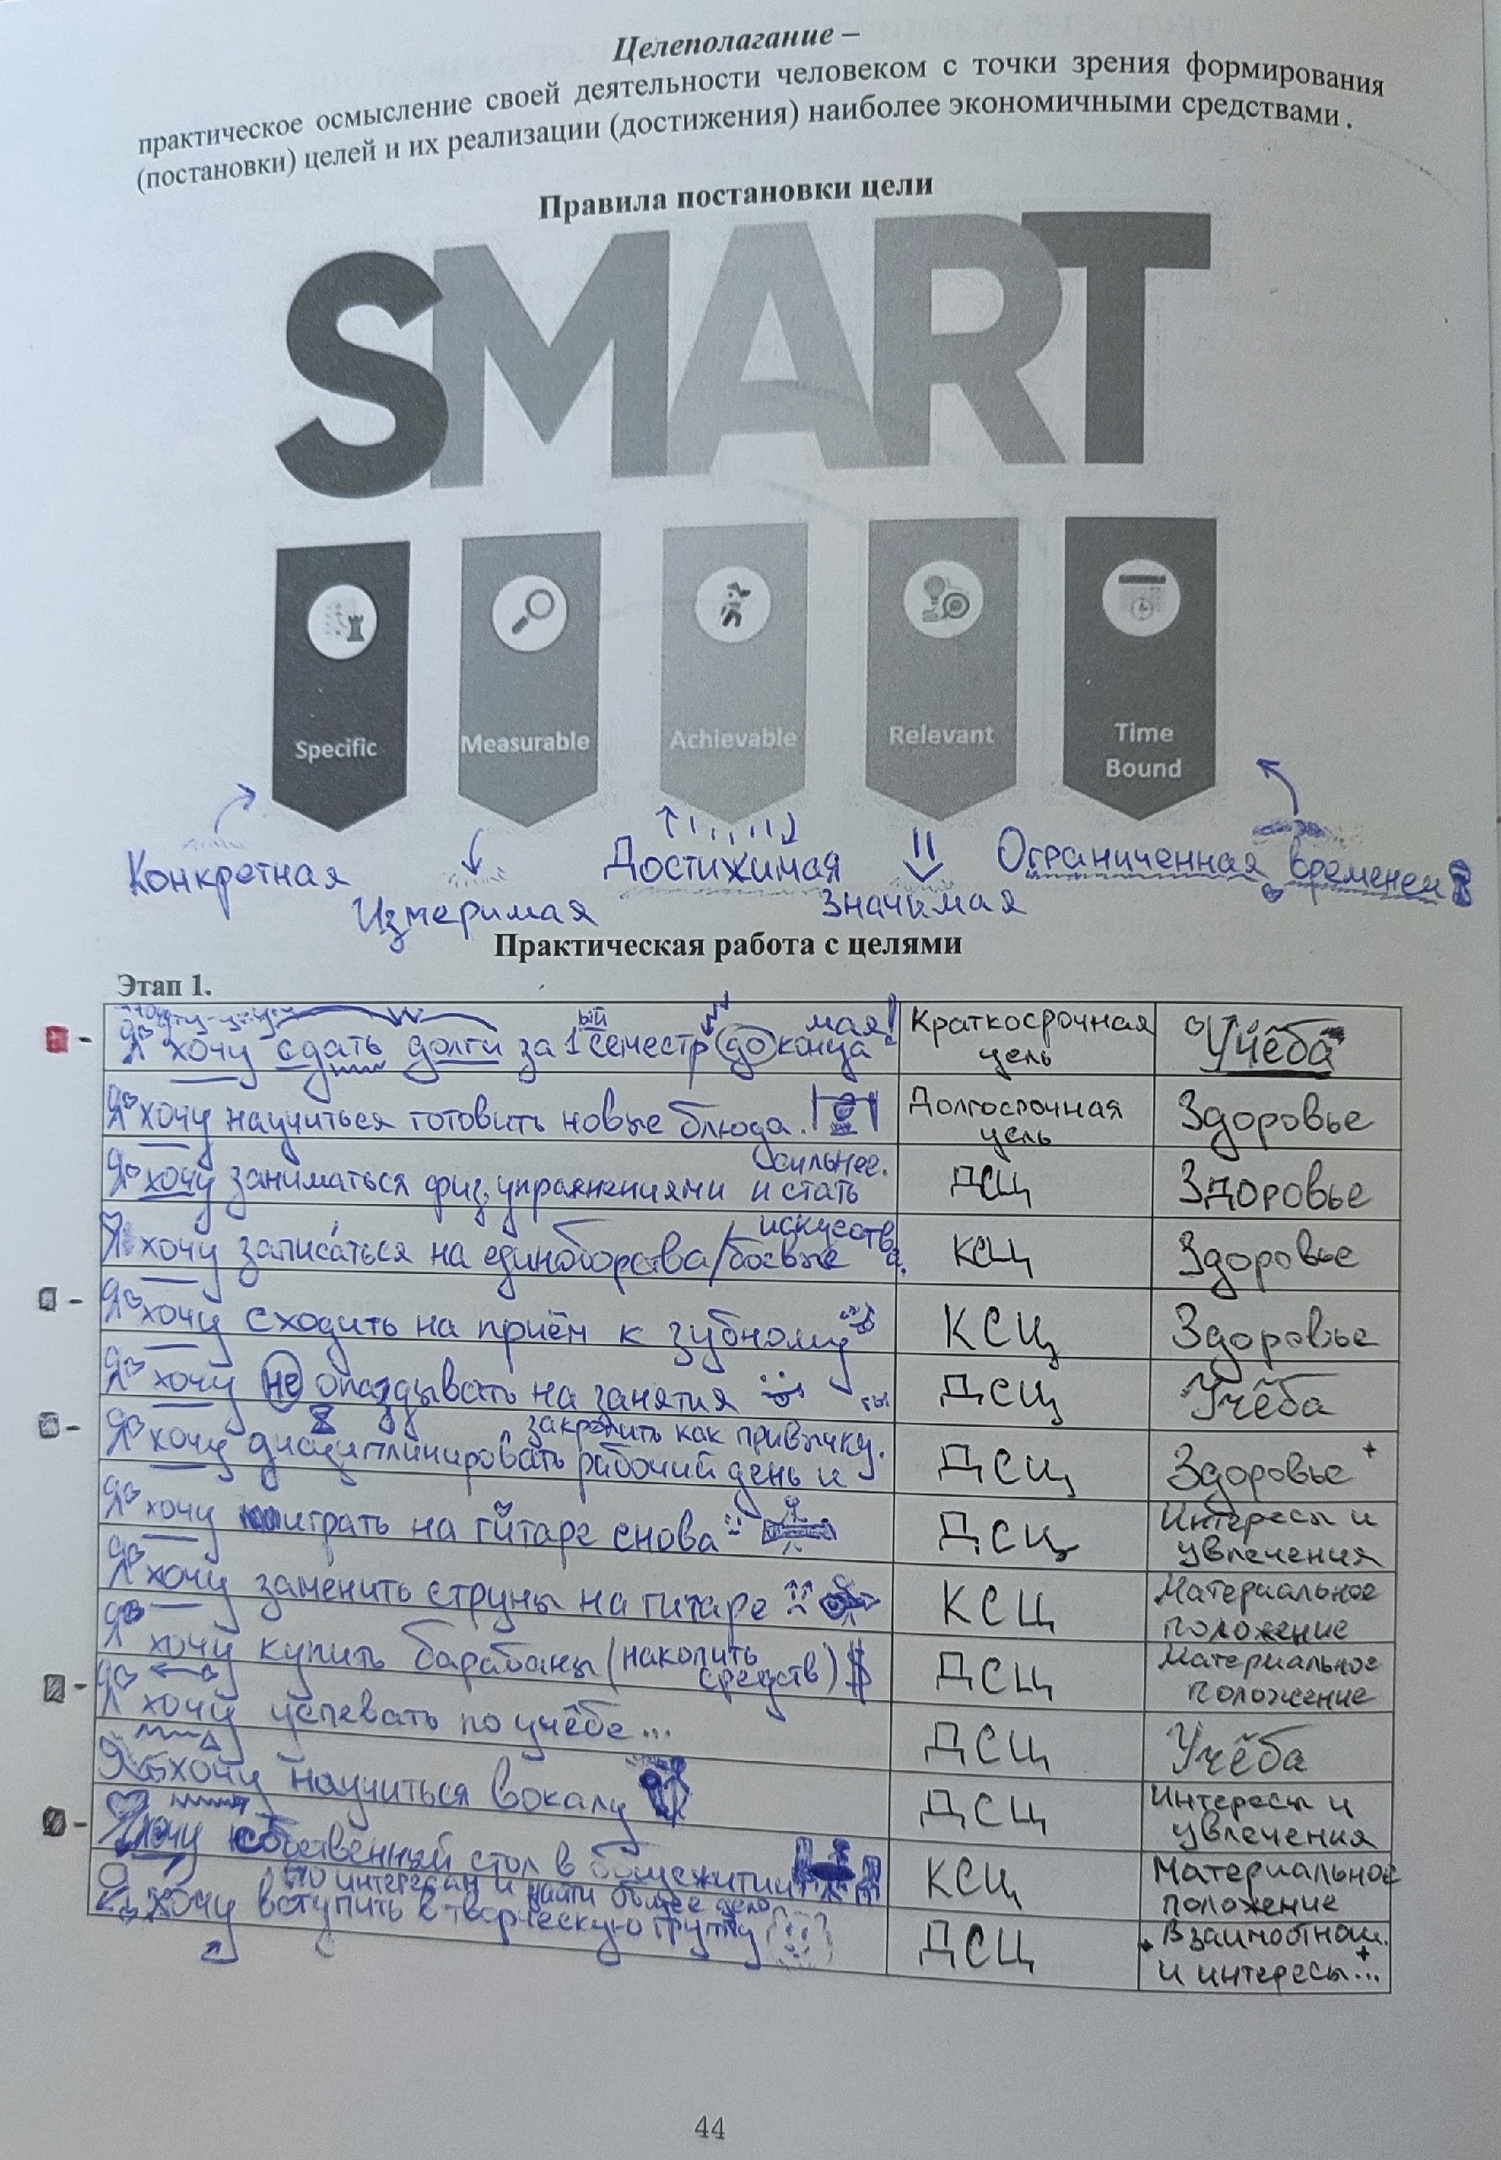 Целеполагание –
практическое осмысление своей деятельности человеком с точки зрения формирования
(постановки) целей и их реализации (достижения) наиболее экономичными средствами.
Правила постановки цели
SMART
Specific
Measurable
Achievable
Relevant
Time
Bound
Конкретная
Измеримая
Достижимая
Значимая
Ограниченная временем
Практическая работа с целями
Этап 1.
Я хочу сдать долги за 1ый семестр до конца мая!
Краткосрочная
цель
Учёба
Я хочу научиться готовить новые блюда.
Долгосрочная
цель
Здоровье
Я хочу заниматься физ. упражнениями и стать сильнее.
ДСЦ
Здоровье
Я хочу записаться на единоборства/боевые искусства.
КСЦ
Здоровье
Я хочу сходить на приём к зубному
КСЦ
Здоровье
Я хочу не опаздывать на занятия
ДСЦ
Учёба
Я хочу дисциплинировать рабочий день и закрепить как привычку.
ДСЦ
Здоровье +
Я хочу играть на гитаре снова
ДСЦ
Интересы и
увлечения
Я хочу заменить струны на гитаре
КСЦ
Материальное
положение
Я хочу купить барабаны (накопить средств) $
ДСЦ
Материальное
положение
Я хочу успевать по учёбе...
ДСЦ
Учёба
Я хочу научиться вокалу
ДСЦ
Интересы и
увлечения
Я хочу собственный стол в общежитии
КСЦ
Материальное
положение
Я хочу вступить в творческую группу по интересам и найти общее дело
ДСЦ
Взаимоотнош.
и интересы...
44